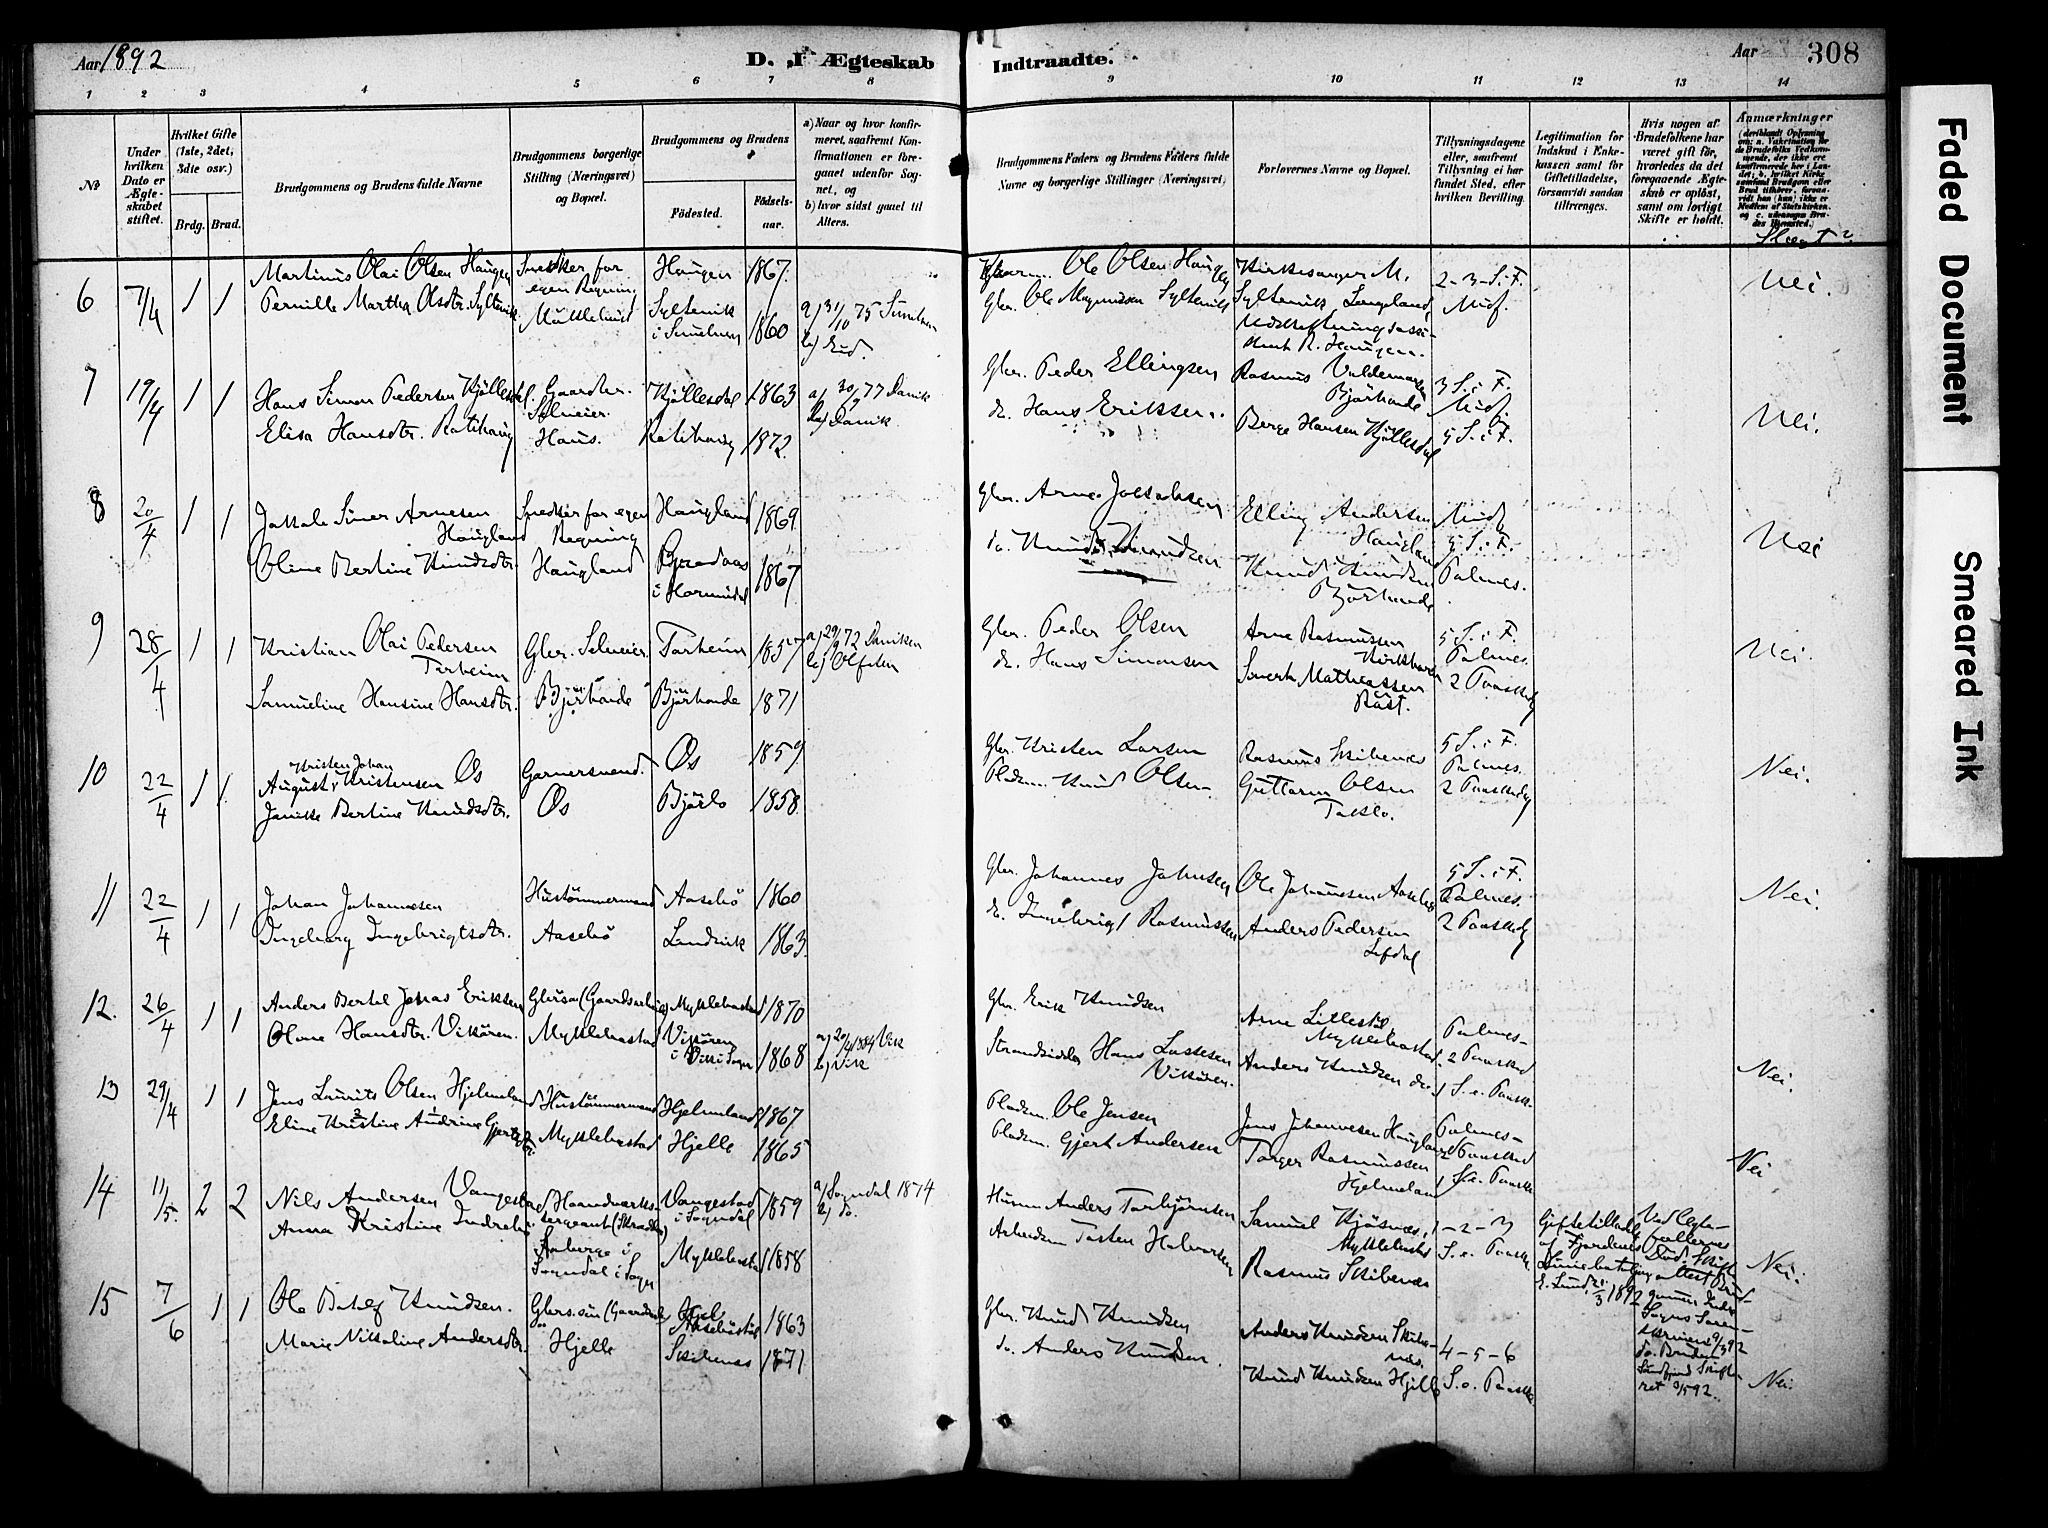 Aar 1892
D. I Ægteskab
Indtraadte.
Aar
308
1 2 3 4 5 6 7 8 9 10 11 12 13 14
№
Under hvilken Dato er Ægteskabet stiftet.
Hvilket Gifte (1ste, 2det, 3die osv.)
Brdg. Brud.
Brudgommens og Brudens fulde Navne
Brudgommens borgerlige Stilling (Næringsvei) og Bopæl.
Brudgommens og Brudens
Fødested.
Fødselsaar.
a) Naar og hvor konfirmeret, saafremt Konfirmationen er foregaaet udenfor Sognet, og
b) hvor sidst gaaet til Alters.
Brudgommens Faders og Brudens Faders fulde Navne og borgerlige Stillinger (Næringsvei)
Forlovernes Navne og Bopæl.
Tillysningsdagene eller, saafremt Tillysning ei har fundet Sted, efter hvilken Bevilling.
Legitimation for Indskud i Enkekassen samt for Giftetilladelse, forsaavidt saadan tiltrænges.
Hvis nogen af Brudefolkene har været gift før, hvorledes da det foregaaende Ægteskab er opløst, samt om lovligt Skifte er holdt.
Anmærkninger
Slægt?
6 7/4 1 1
Martinus Olai Olsen Haugen
Pernille Martha Olsdtr. Syltevik
Snedker for
egen Regning
Myklebust
Haugen 1867.
Syltevik 1860
a) 31/10 75
b) Eid.
Ole Olsen Haugen
Gbr. Ole Magnussen Syltevik
Kirkesanger M.
Syltevik Langland,
R. Haugen.
2-3-S.i.F.
Midf.
Nei.
7 19/4 1 1
Hans Simon Pedersen Kjøllesdal
Elisa Hansdtr. Ratihaug
Gaardbr.
Selveier.
Haus.
Kjøllesdal 1863
Ratihaug 1872.
a) 30/9 77 Davik
b) Davik
Gbr. Peder Ellingsen
do. Hans Eriksen.
Rasmus Valdemarsen
Bjørhovde
Berge Hansen Kjøllesdal
3 S.i.F.
Midf.
5 S.i.F.
Nei.
8 20/4 1 1
Arnesen
Haugland
Oline Bertine Knudsdtr.
Snedker for egen
Regning
Haugland
Haugland 1869.
i Hornindal 1867
Gbr. Arne
do. Knud Knudsen
Elling Andersen
Haugland
Knud Knudsen
Bjørhovde
Midf.
5 S.i.F.
Palmes.
Nei
9 28/4 1 1
Kristian Olai Pedersen
Torheim
Samueline Hansine Hansdtr.
Gbr. Selveier.
Bjørhovde
Torheim 1857
Bjørhovde 1871
a) 29/9 72 Daviken
b)
Gbr. Peder Olsen
do. Hans Simonsen
Arne Rasmussen
Mathiassen
Råst.
5 S.i.F.
Palmes.
2 Paaskedg
Nei.
10 22/4 1 1
Kristen Johan
August Kristensen Os
Bertine Knudsdtr.
Garversvend.
Os
Os 1859
Bjørlo 1858.
Gbr. Kristen Larsen
Pladsm. Knud Olsen
Rasmus Skibenes
Guttorm Olsen
Taklo.
5 S.i.F.
Palmes.
2 Paaskedg
Nei.
11 22/4 1 1
Johan Johannesen
Ingeborg Ingebrigtsdtr.
Hustømmermand
Aasebø
Aasebø 1860
Landvik 1863.
Gbr. Johannes Johnsen
do. Ingebrigt Rasmussen
Ole Johannesen Aasebø
Anders Pedersen
Lefdal
5 S.i.F.
Palmes.
2 Paaskedg
Nei.
12. 26/4 1 1
Anders Bertel Jonas Eriksen
Hansdtr. Vikøren.
Gbrsøn (Gaardsarbei)
Myklebustad
Myklebustad 1870
Vikøren
i Vik i Sogn 1868
a) 20/4 1884 Vik
b) Vik
Gbr. Erik Knudsen
Strandsidder Hans Lassesen
Vikøren.
Arne Lillestøl,
Myklebustad.
Anders Knudsen do.
Palmes-
2 Paasked
1 S.e. Paaske
Nei.
13 29/4 1 1
Jens Laurits Olsen Hjelmeland
Eline Kristine Andrine Gjertsdtr.
Hustømmermand
Myklebustad
Hjelmeland 1867
Hjelle 1865
Pladsm. Ole Jensen
Pladsm. Gjert Andersen
Jens Johannesen Haugland
Torger Rasmussen
Hjelmeland
Palmes-
2 Paasked
1 S.e. Paaske
Nei
14 11/5. 2 2
Nils Andersen Vangestad
Anna Kristine Indrebø
Haandværks-
sergeant (Skrædder)
i
Sogndal i Sogn
Vangestad
i Sogndal 1859
Myklebustad 1858
a) Sogndal 1874
b) do.
Husm. Anders Torbjørnsen
Arbeidsm. Tosten Halvorsen
Samuel Kjøsnæs,
Myklebustad
Rasmus Skibenæs
1-2-3
S.e. Paaske
Giftetilladelse
af Fjordenes
Liniebataljon
E. Lund, 21/3 1892
Ved Ægte-
fællernes
Død. Skifte-
attest Brud-
gommen Indre
Sogns Soren-
skriveri 9/3 92
do. Bruden
Søndfjord Skifte-
ret 3/5 92.
Nei.
15 7/6 1 1
Ole Knudsen.
Marie Nikoline Andersdtr.
Gbrs. søn (Gaardsarb)
Hjelle
1863
Skibenes 1871
Gbr. Knud Knudsen
do. Anders Knudsen.
Anders Knudsen Skibe-
næs.
Knud Knudsen Hjelle
4-5-6
S.e. Paaske
Nei.
Faded Document
Smeared Ink